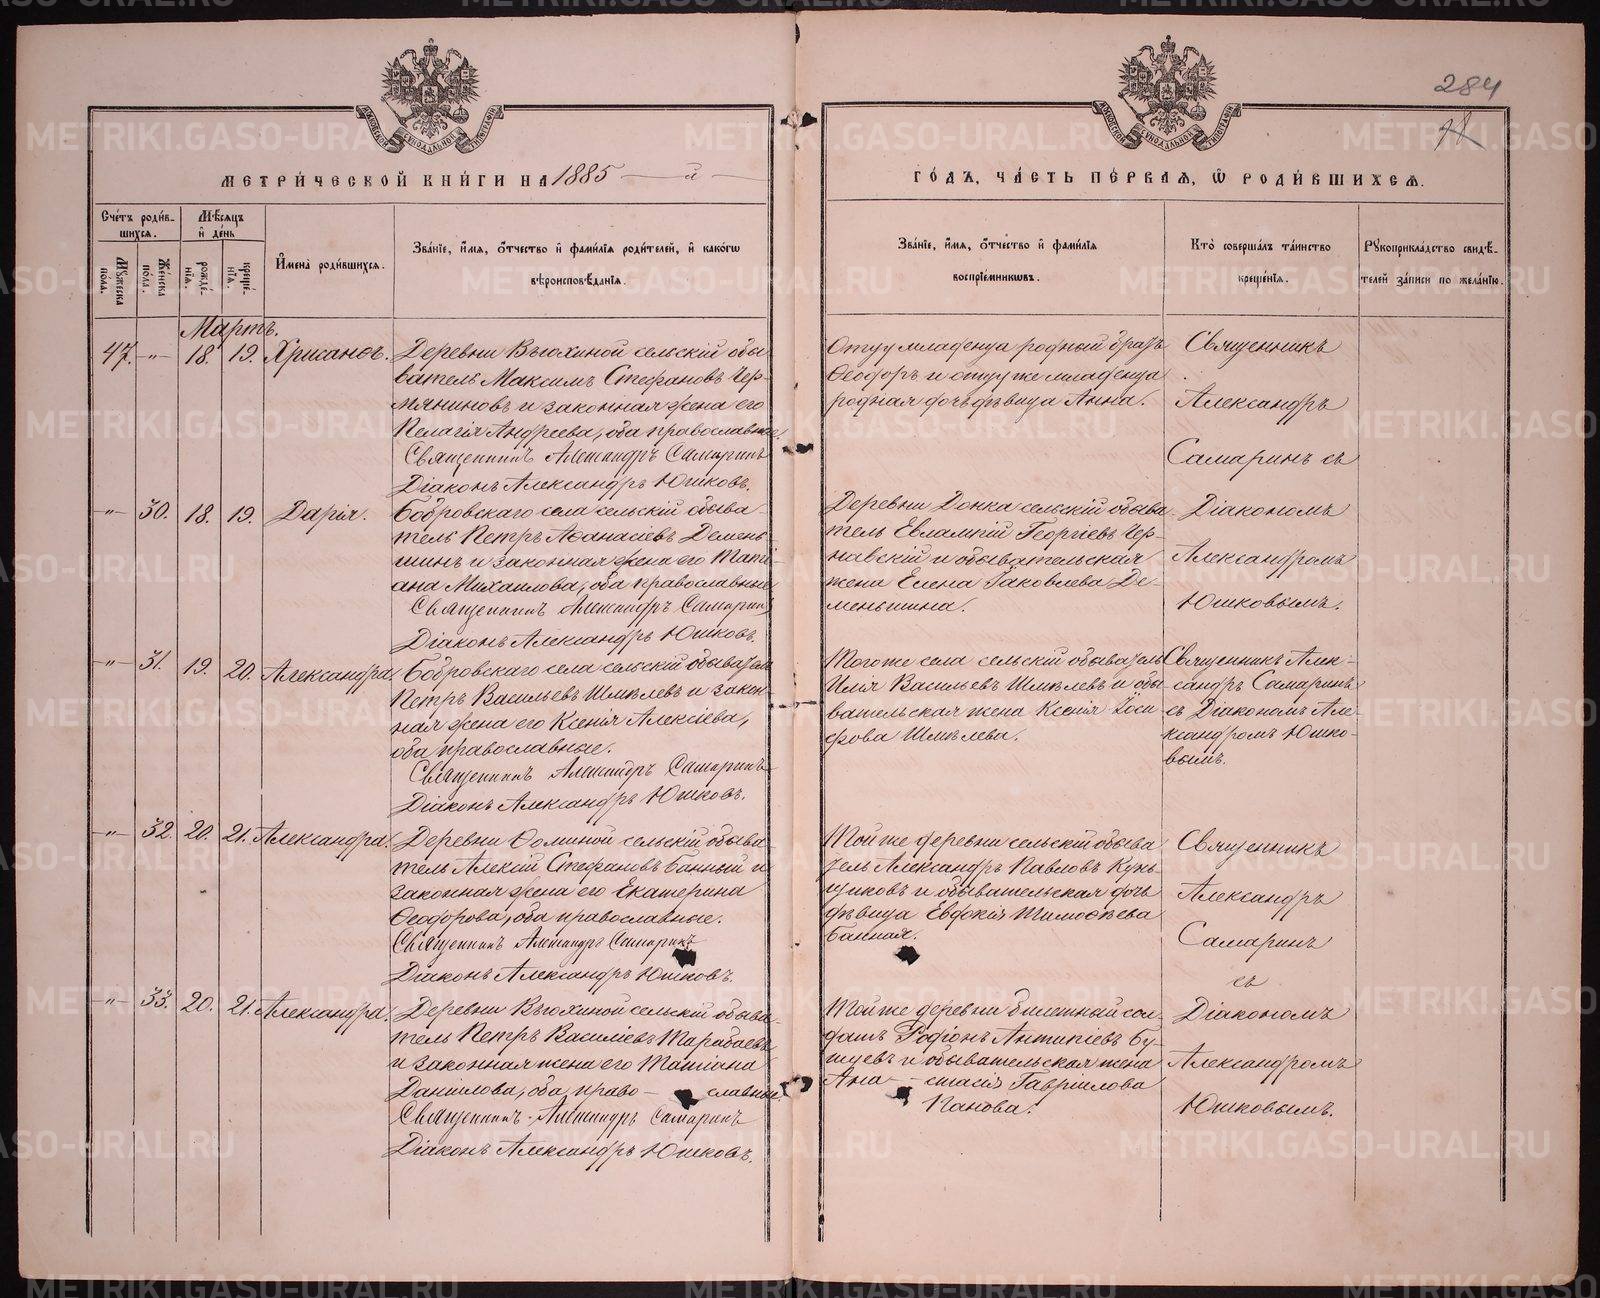 284
78
МЕТРИЧЕСКОЙ КНИГИ НА 1885 й
ГОДЪ, ЧАСТЬ ПЕРВАЯ, Ѡ РОДИВШИХСЯ.
Счетъ родившихся.
Мужеска пола.
Женска пола.
Мѣсяцъ и день
рожденія.
крещенія.
Имена родившихся.
Званіе, имя, отчество и фамилія родителей, и какогѡ
вѣроисповѣданія.
Званіе, имя, отчество и фамилія
воспріемниковъ.
Кто совершалъ таинство
крещенія.
Рукоприкладство свидѣтелей записи по желанію.
Мартъ.
47. — " — 18. 19. Хрисанѳъ.
Деревни Вьюхиной сельскій обы-
ватель Максимъ Стефановъ Чер-
мяниновъ и законная жена его
Пелагія Андреева, оба православные.
Священникъ Александръ Самаринъ
Діаконъ Александръ Юшковъ.
Отцу младенца родный братъ
Ѳеодоръ и отцу же младенца
родная дочь дѣвица Анна.
Священникъ
Александръ
Самаринъ съ
— " — 30. 18. 19. Дарія.
Бобровскаго села сельскій обыва-
тель Петръ Аѳанасіевъ Демень-
шинъ и законная жена его Тати-
ана Михаилова, оба православные
Священникъ Александръ Самаринъ
Діаконъ Александръ Юшковъ.
Деревни Донка сельскій обыва-
тель Евлампій Георгіевъ Чер-
навскій и обывательская
жена Елена Іаковлева Де-
меньшина.
Діакономъ
Александромъ
Юшковымъ.
— " — 31. 19. 20. Александра.
Бобровскаго села сельскій обыватель
Петръ Васильевъ Шмелевъ и закон-
ная жена его Ксенія Алексіева,
оба православные.
Священникъ Александръ Самаринъ
Діаконъ Александръ Юшковъ.
Того же села сельскій обыватель
Илія Васильевъ Шмелевъ и обы-
вательская жена Ксенія Іоси-
фова Шмелева.
Священникъ Алек-
сандръ Самаринъ
съ Діакономъ Але-
ксандромъ Юшко-
вымъ.
— " — 32. 20. 21. Александра.
Деревни Ѳоминой сельскій обыва-
тель Алексій Стефановъ Банный и
законная жена его Екатерина
Ѳеодорова, оба православные.
Священникъ Александръ Самаринъ
Діаконъ Александръ Юшковъ.
Той же деревни сельскій обыва-
тель Александръ Павловъ Кузь-
щиковъ и обывательская дочь
дѣвица Евдокія Тимоѳеева
Банная.
Священникъ
Александръ
Самаринъ
съ
— " — 33. 20. 21. Александра.
Деревни Вьюхиной сельскій обыва-
тель Петръ Василіевъ Тарабаевъ
и законная жена его Татіана
Даніилова, оба право — славные.
Священникъ Александръ Самаринъ
Діаконъ Александръ Юшковъ.
Той же деревни билетный сол-
датъ Родіонъ Антипіевъ Бу-
шуевъ и обывательская жена
Ана — стасія Гавріилова
Панова.
Діакономъ
Александромъ
Юшковымъ.
METRIKI.GASO-URAL.RU